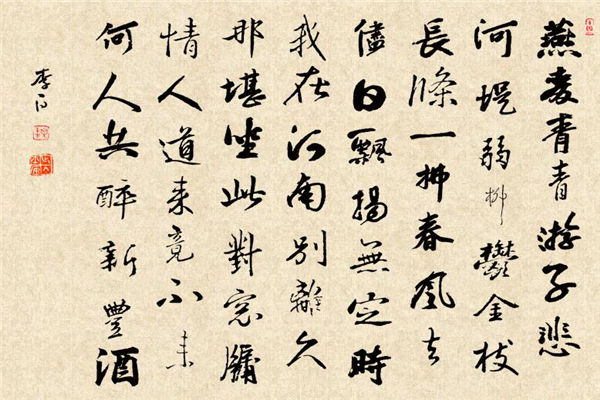 燕麥青青游子悲
河堤弱柳鬱金枝
長條一拂春風去
儘日飄揚無定時
我在河南別離久
那堪坐此對窓牖
情人道来竟不来
何人共醉新豐酒
李白